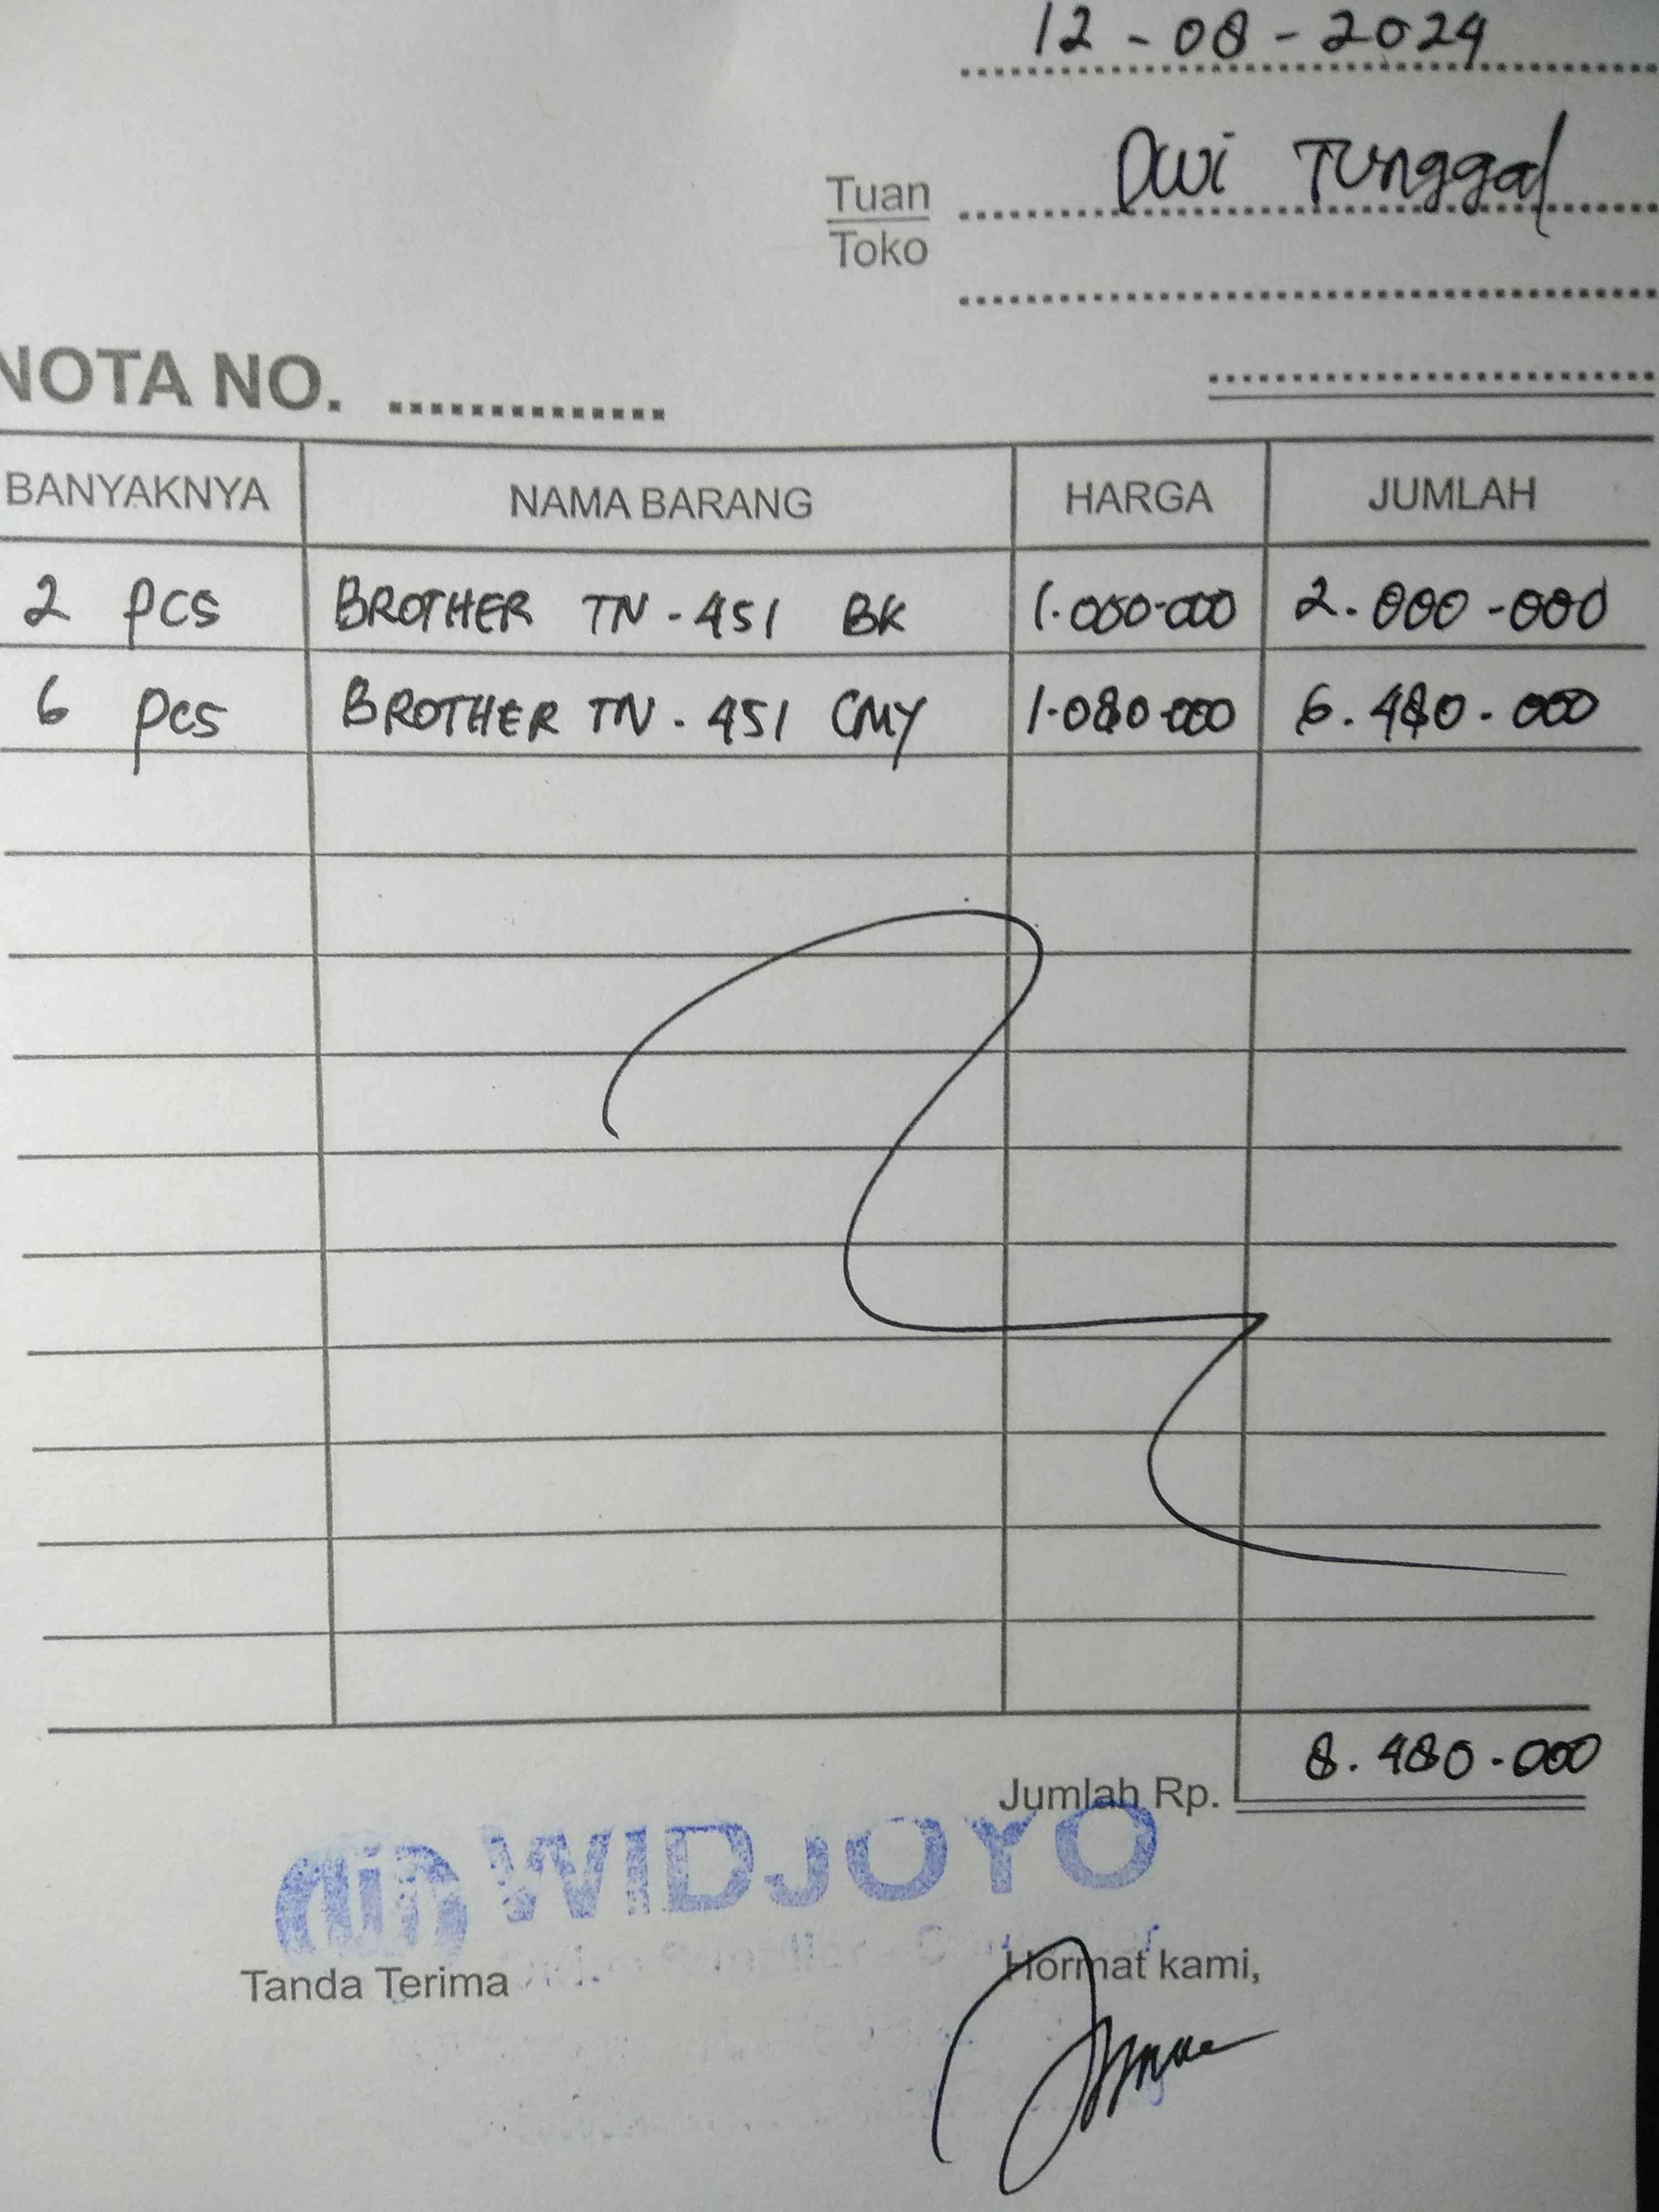 12 - 08 - 2024
Tuan
Toko
Dwi Tunggal
NOTA NO.
BANYAKNYA NAMA BARANG HARGA JUMLAH
2 pcs BROTHER TN - 451 BK 1.000.000 2.000.000
6 pcs BROTHER TN - 451 CMY 1.080.000 6.480.000
Jumlah Rp. 8.480.000
WIDJOYO
Tanda Terima Hormat kami,